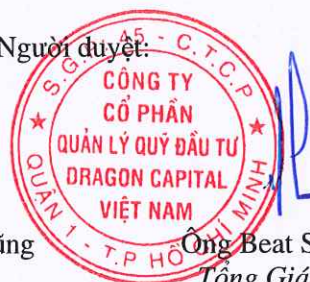 Người duyệt:
S.G.P: 45 - C.T.C.P
CÔNG TY
CỔ PHẦN
QUẢN LÝ QUỸ ĐẦU TƯ
DRAGON CAPITAL
VIỆT NAM
QUẬN 1 - T.P HỒ CHÍ MINH
Ông Beat
Tổng Giá